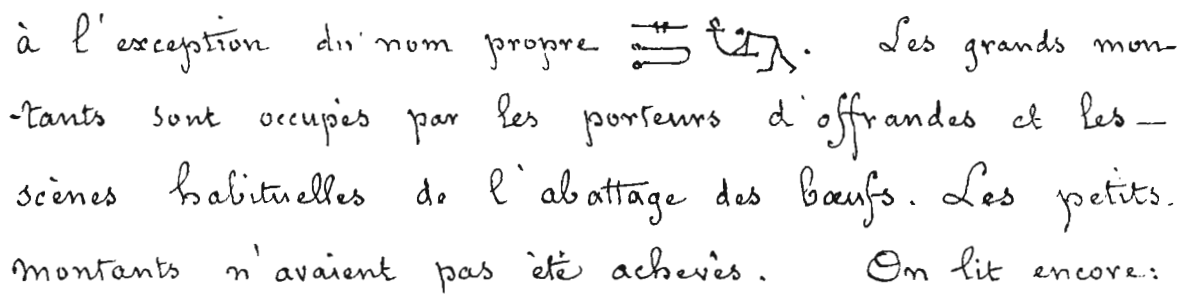 à l'exception du nom propre . Les grands mon-
-tants sont occupés par les porteurs d'offrandes et les —
scènes habituelles de l'abattage des bœufs. Les petits.
montants n'avaient pas été achevés. On lit encore: